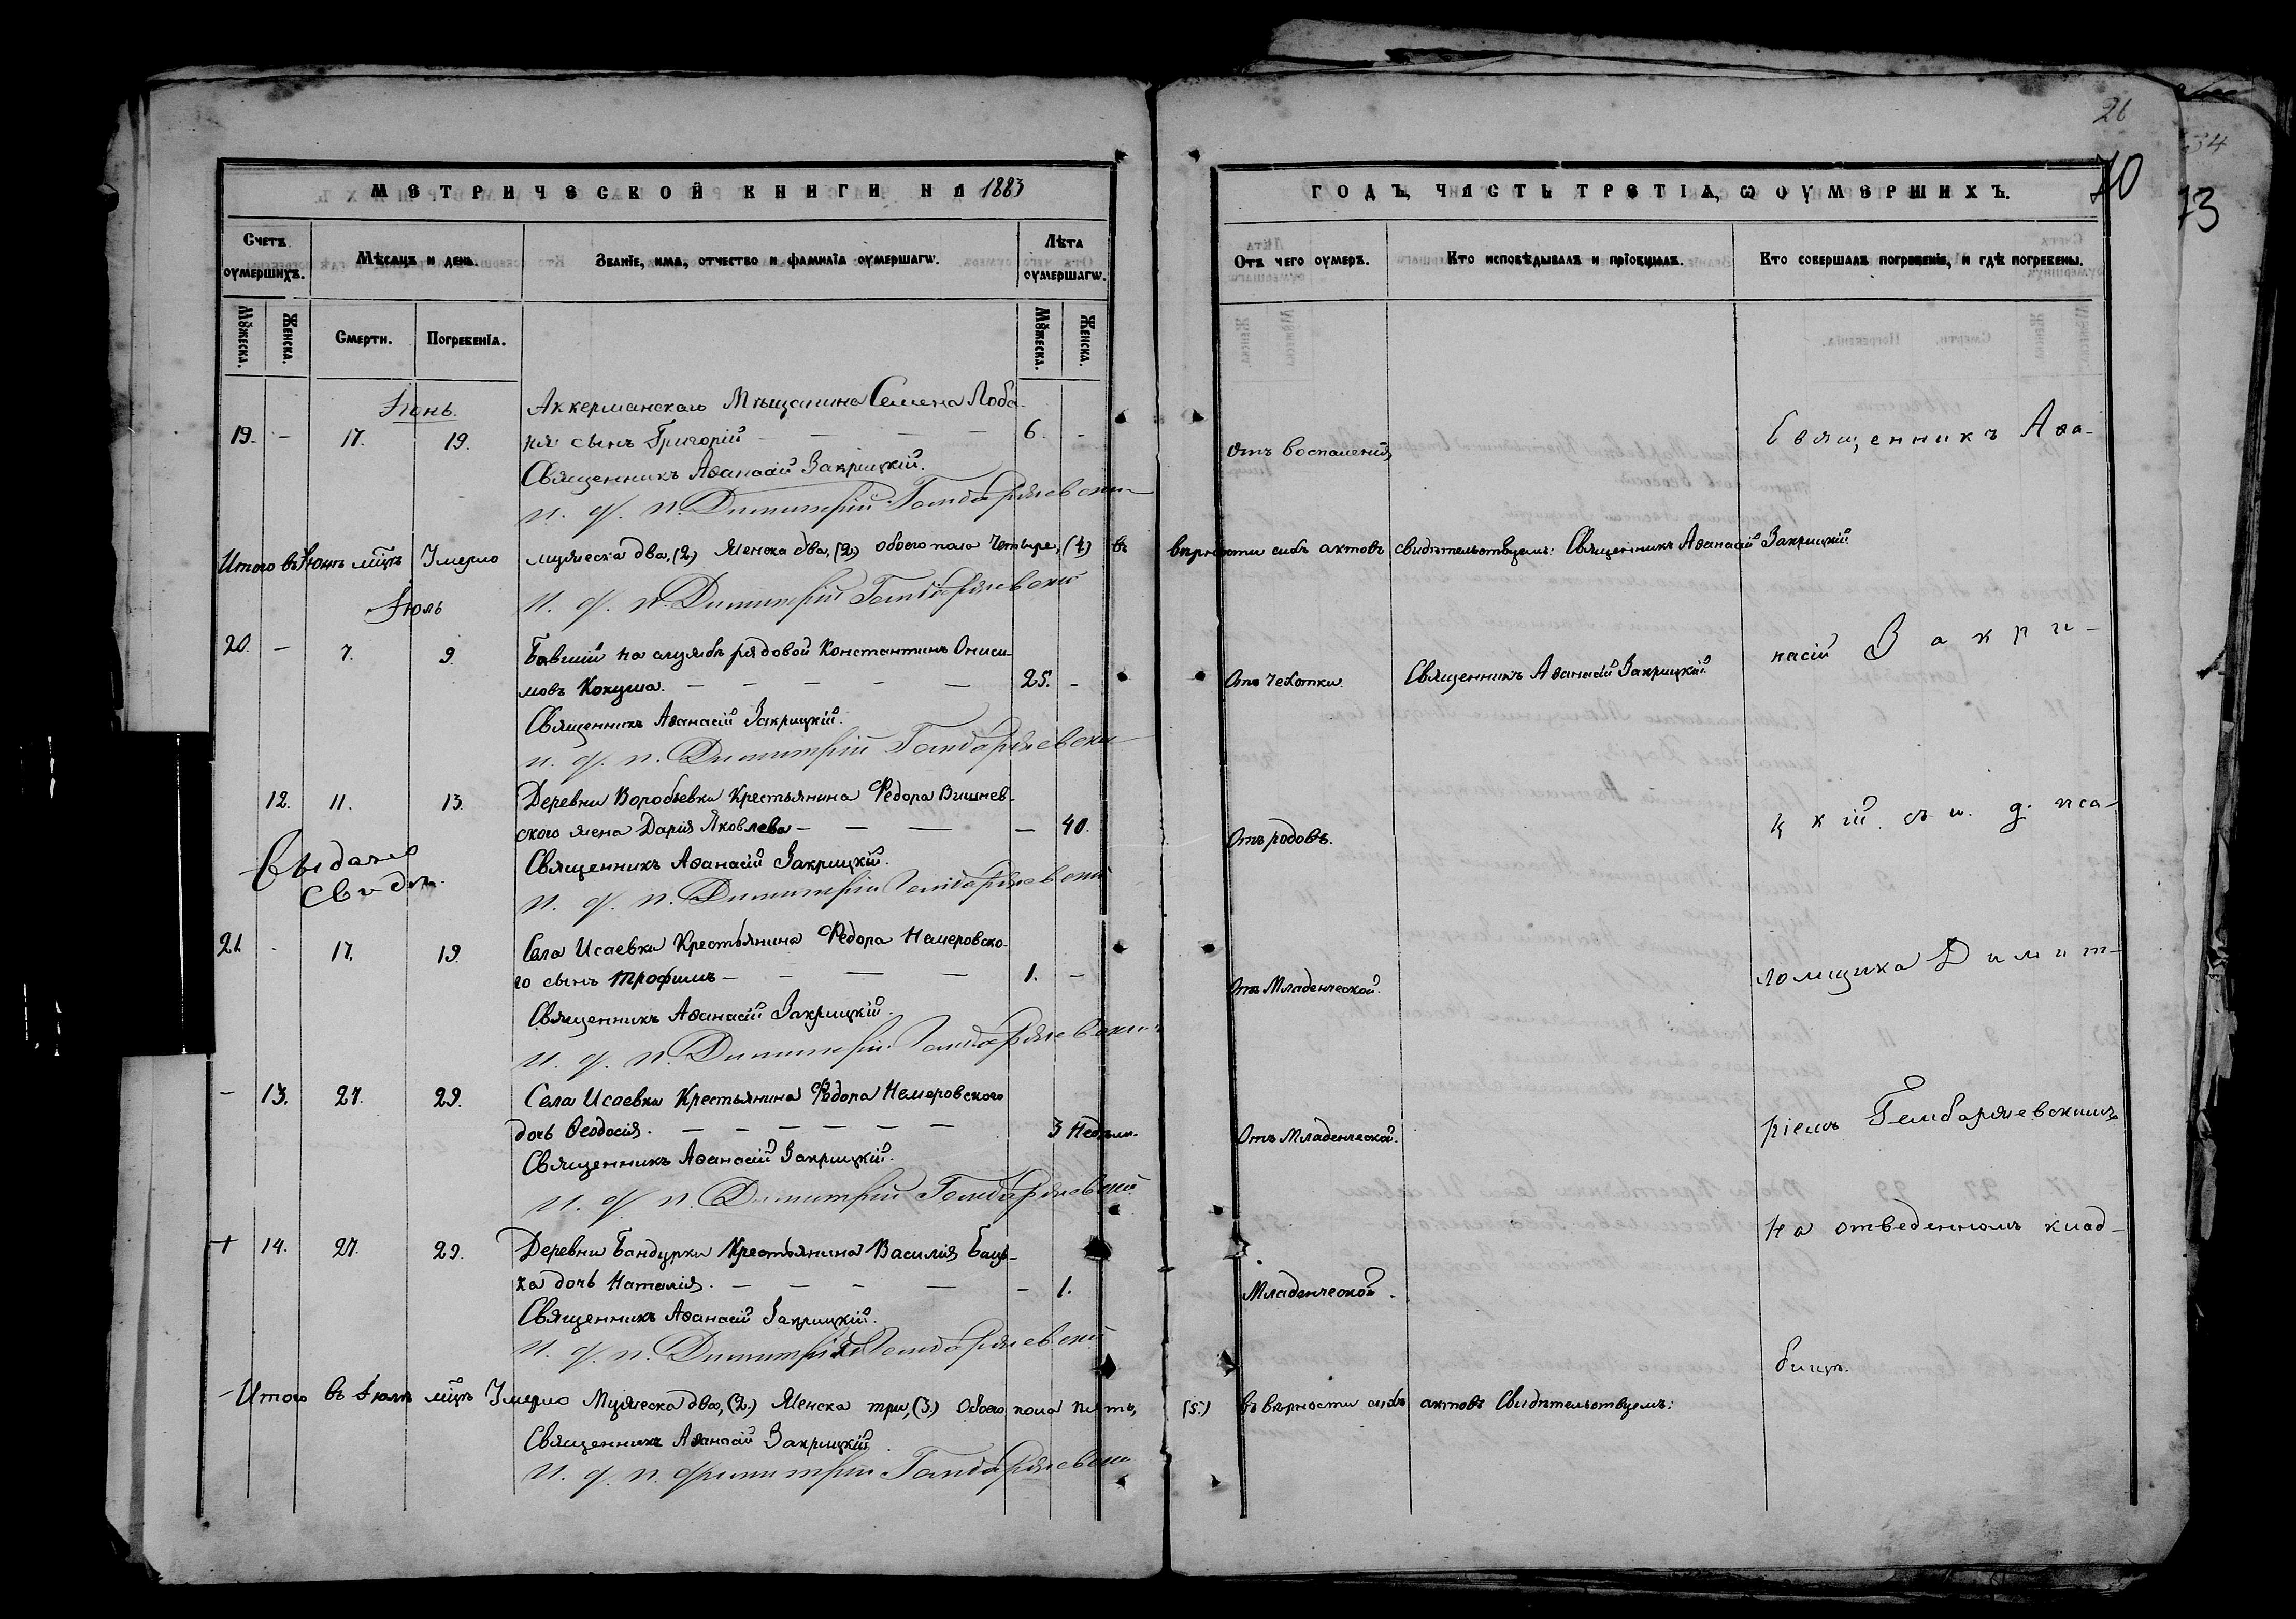 26
34
70
73
МЕТРИЧЕСКОЙ КНИГИ НА 1883
ГОДЪ, ЧАСТЬ ТРЕТІА, Ѡ ОУМЕРШИХЪ.
Счетъ оумершихъ.
Мѣсяцъ и день.
Званїе, има, отчество и фамилїа оумершагѡ.
Лѣта оумершагѡ.
Отъ чего оумеръ.
Кто исповѣдывалъ и прїобщалъ.
Кто совершалъ погребенїе, и гдѣ погребены.
Мꙋжеска.
Женска.
Смерти.
Погребенїа.
Мꙋжеска.
Женска.
Іюнь.
Аккерманскаго Мѣщанина Семена Лоба-
19. - 17. 19. ня сынъ Григорій — 6. -
Отъ воспаленія
Священникъ Аѳа-
Священникъ Аѳанасій Закрицкій.
и. д. п. Димитрій Гембаржевскій
Итого въ Іюнѣ мцѣ Умерло мужеска два, (2.) Женска два, (2.) обоего пола Четыре, (4.) въ вѣрности сихъ актовъ свидѣтельствуемъ: Священникъ Аѳанасій Закрицкій
и. д. п. Димитрій Гембаржевскій
Іюль
20. - 7. 9. Бывшій на службѣ рядовой Константинъ Ониси-
мовъ Кокуша. — 25. -
Отъ чехотки.
Священникъ Аѳанасій Закрицкій.
насій Закри-
Священникъ Аѳанасій Закрицкій.
и. д. п. Димитрій Гембаржевскій
12. 11. 13. Деревни Воробьевки Крестьянина Федора Вишнев-
ского жена Дарія Яковлева — 40.
Отъ родовъ.
цкій съ и. д. пса-
Выдано
Свид.
Священникъ Аѳанасій Закрицкій.
и. д. п. Димитрій Гембаржевскій
21. - 17. 19. Села Исаевки Крестьянина Федора Немеровско-
го сынъ Трофимъ — 1. -
Отъ Младенческой.
ломщика Димит-
Священникъ Аѳанасій Закрицкій.
и. д. п. Димитрій Гембаржевскій
- 13. 27. 29. Села Исаевки Крестьянина Федора Немеровского
дочь Ѳеодосія. — 3 Недѣли.
Отъ Младенческой.
ріемъ Гембаржевскимъ
Священникъ Аѳанасій Закрицкій.
и. д. п. Димитрій Гембаржевскій
+ 14. 27. 29. Деревни Бандурки Крестьянина Василія
дочь Наталія. — 1.
Младенческой.
На отведенномъ клад-
Священникъ Аѳанасій Закрицкій.
и. д. п. Димитрій Гембаржевскій
бищѣ.
Итого въ Іюлѣ мцѣ Умерло Мужеска два, (2.) Женска три, (3.) Обоего пола пять, (5.) въ вѣрности сихъ актовъ Свидѣтельствуемъ:
Священникъ Аѳанасій Закрицкій
и. д. п. Димитрій Гембаржевскій